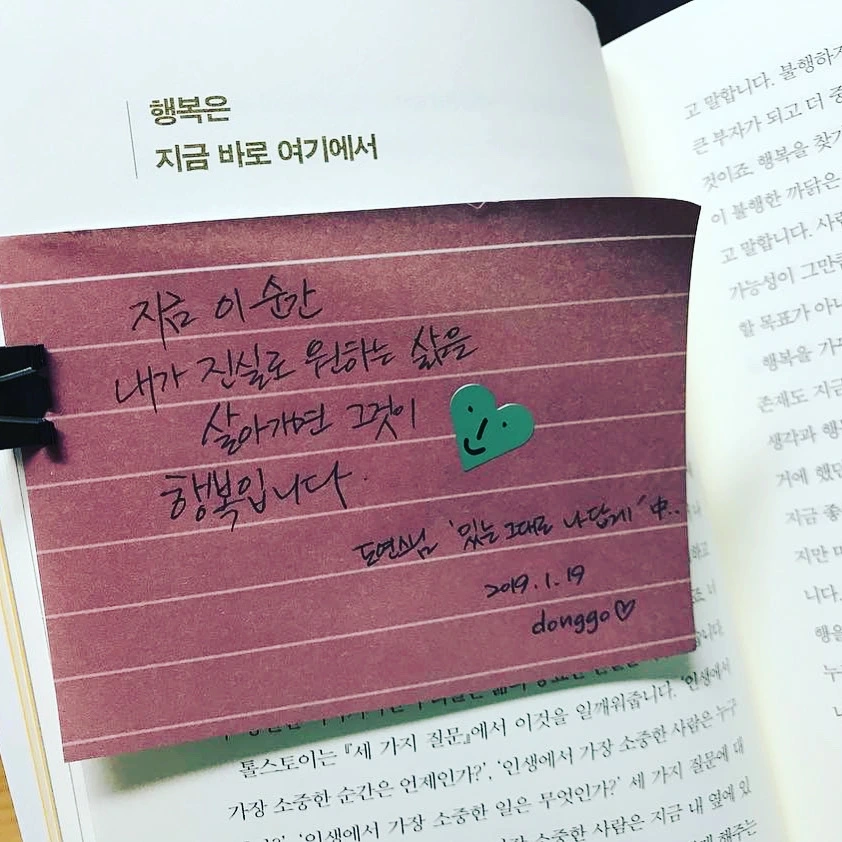 행복은
지금 바로 여기에서
지금 이 순간
내가 진실로 원하는 삶을
살아가면 그것이
행복입니다.
도연스님 '있는 그대로 나답게' 中..
2019.1.19
donggo♡
톨스토이는 『세 가지 질문』에서 이것을 일깨워줍니다. '인생에서
가장 소중한 순간은 언제인가?', '인생에서 가장 소중한 사람은 누구
'인생에서 가장 소중한 일은 무엇인가?' 세 가지 질문에 대
소중한 사람은 지금 내 옆에 있
해주는
고 말합니다. 불행하
큰 부자가 되고 더
것이죠. 행복을 찾
이 불행한 까닭은
고 말합니다.
가능성이 그만큼
할 목표가 아니
행복을
존재도 지금
생각과
거에 했던
지금
지만
니다.